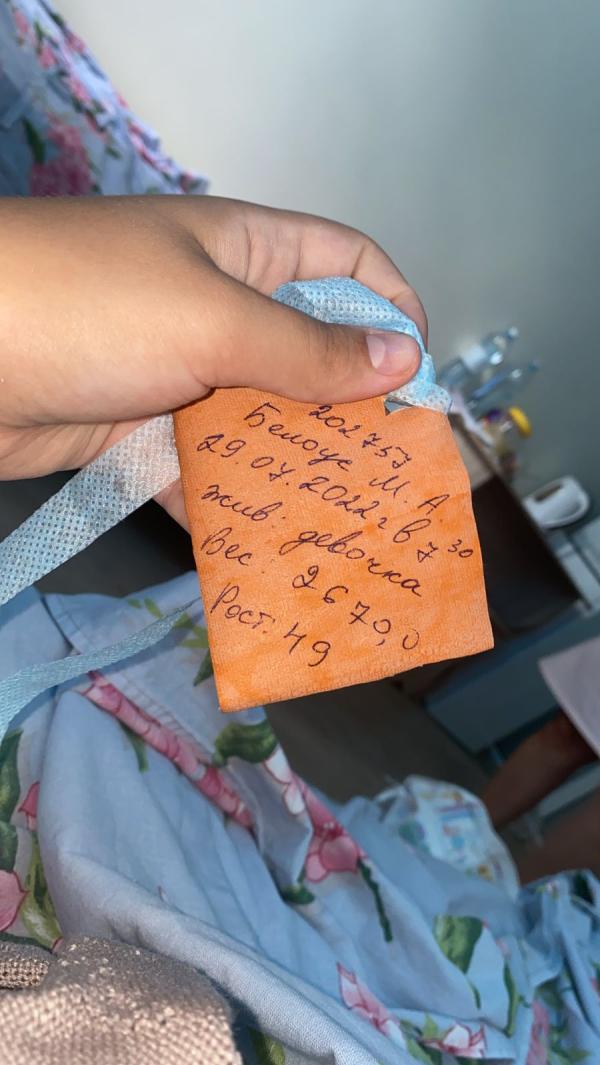 202757
Белоус М. А
29.07.2022г в 7³⁰
жив: девочка
Вес: 2670,0
Рост: 49